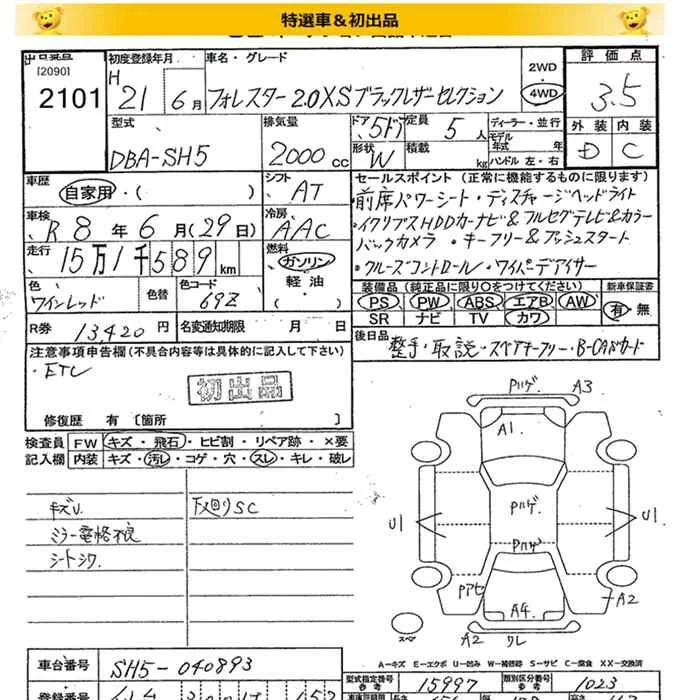 特選車＆初出品
出品番号
[2090]
2101
初度登録年月
H
21 6月
車名・グレード
フォレスター 2.0XSブラックレザーセレクション
2WD
4WD
評価点
3.5
外装 内装
D C
型式
DBA-SH5
排気量
2000cc
ドア 5ドア
定員 5人
形状 W
積載 kg
ディーラー・並行
モデル年式 年式
ハンドル 左・右
車歴
自家用・( )
シフト
AT
セールスポイント（正常に機能するものに限ります）
・前席パワーシート・ディスチャージヘッドライト
・イクリプスHDDカーナビ&フルセグテレビ&カラー
バックカメラ ・キーフリー&プッシュスタート
・クルーズコントロール・ワイパーデアイサー
車検
R 8年 6月(29日)
冷房
AAC
走行
15万1千589km
燃料
ガソリン
軽油
( )
色
ワインレッド
色替
色コード
69Z
装備品（純正品に限り○をつけてください）
PS PW ABS エアB AW
SR ナビ TV カワ
新車保証書
有・無
R券 13,420円
名変通知期限 月 日
後日品
整手・取説・スペアキーフリー・B-CASカード
注意事項申告欄（不具合内容等は具体的に記入して下さい）
・ETC
初出品
修復歴 有〔箇所 〕
検査員記入欄
FW キズ・飛石・ヒビ割・リペア跡・×要
内装 キズ・汚レ・コゲ・穴・スレ・キレ・破レ
キズU.
下廻りSC
ミラー電格不良
シートシワ.
Pハゲ A3
A1
Pハゲ
U1
U1
Pハゲ
Pアセ
A4.
A2
スペア
A2 ワレ
A－キズ E－エクボ U－凹み W－補修跡 S－サビ C－腐食 XX－交換済
車台番号
SH5-040893
型式指定番号 参考
15997
類別区分番号 参考
1023
登録番号